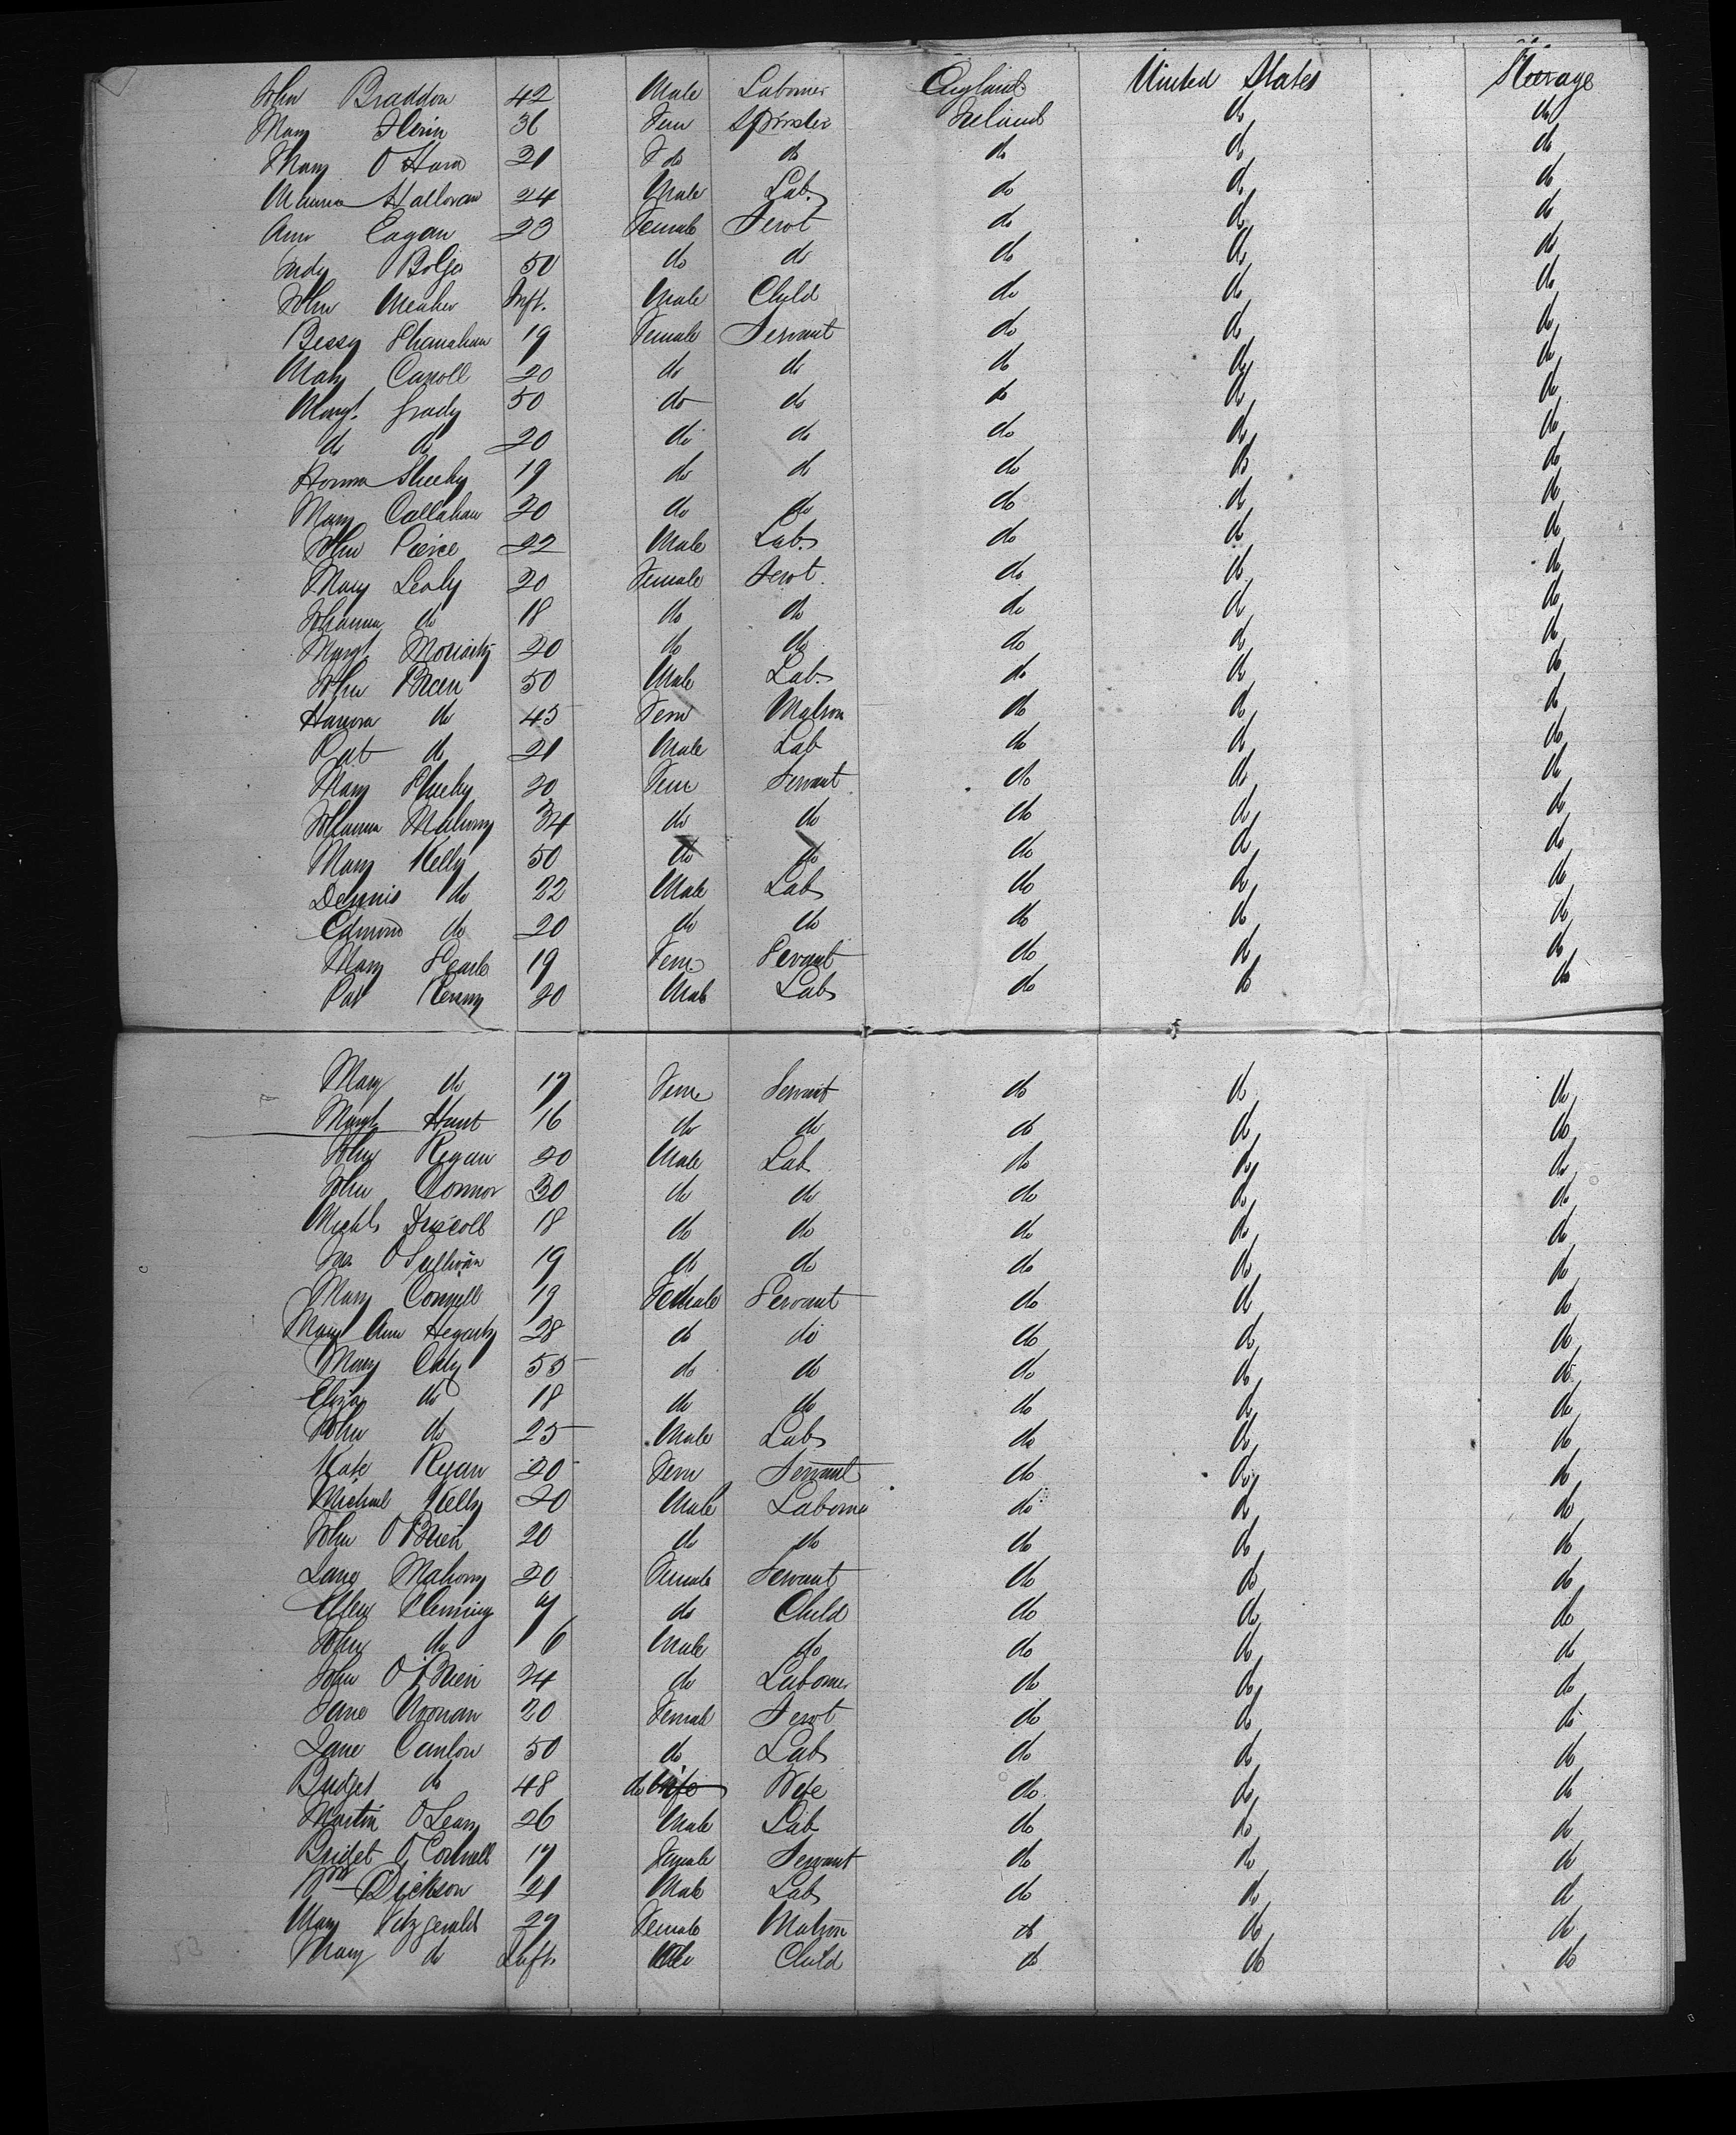 John Braddon 42 Male Laborer England United States Steerage
Mary Herin 36 Fem Spinster Ireland do do
Mary O Hara 21 F do do do do do
Maurice Halloran 24 Male Lab do do do
Ann Eagan 23 Female Servt do do do
Judy Bolger 50 do do do do do
John Meaher Inft. Male Child do do do
Bessy Shanahan 19 Female Servant do do do
Mary Carroll 20 do do do do do
Margt. Grady 50 do do do do do
do do 20 do do do do do
Honora Sheehy 19 do do do do do
Mary Callahan 20 do do do do do
John Pierce 22 Male Lab. do do do
Mary Leahy 20 Female Servt. do do do
Johanna do 18 do do do do do
Margt. Moriarty 20 do do do do do
John Brien 50 Male Lab. do do do
Hanora do 45 Fem Matron do do do
Pat do 21 Male Lab do do do
Mary Sheehy 20 Fem Servant do do do
Johanna Mahony 34 do do do do do
Mary Kelly 50 do do do do do
Dennis do 22 Male Lab do do do
Edmond do 20 do do do do do
Mary Searls 19 Fem. Servant do do do
Pat Kenny 20 Male Lab do do do
Mary do 17 Fem Servant do do do
Margt Hunt 16 do do do do do
John Regan 20 Male Lab do do do
John Connor 30 do do do do do
Michl. Driscoll 18 do do do do do
Jas O Sullivan 19 do do do do do
Mary Connell 19 Female Servant do do do
Mary Ann Hegarty 28 do do do do do
Mary Caty 55 do do do do do
Eliza do 18 do do do do do
John do 25 Male Lab do do do
Kate Ryan 20 Fem Servant do do do
Michael Kelly 20 Male Laborer do do do
John O Brien 20 do do do do do
Jane Mahony 20 Female Servant do do do
Ellen Fleming 7 do Child do do do
John do 6 Male do do do do
John O Brien 24 do Laborer do do do
Jane Noonan 20 Female Servt do do do
Jane Canlon 50 do Lab do do do
Bridget do 48 do Wife Wife do do do
Martin O Leary 26 Male Lab do do do
Bridget O Connell 17 Female Servant do do do
Wm Dickson 21 Male Lab do do do
Mary Fitzgerald 27 Female Matron do do do
Mary do Inft. Child do do do